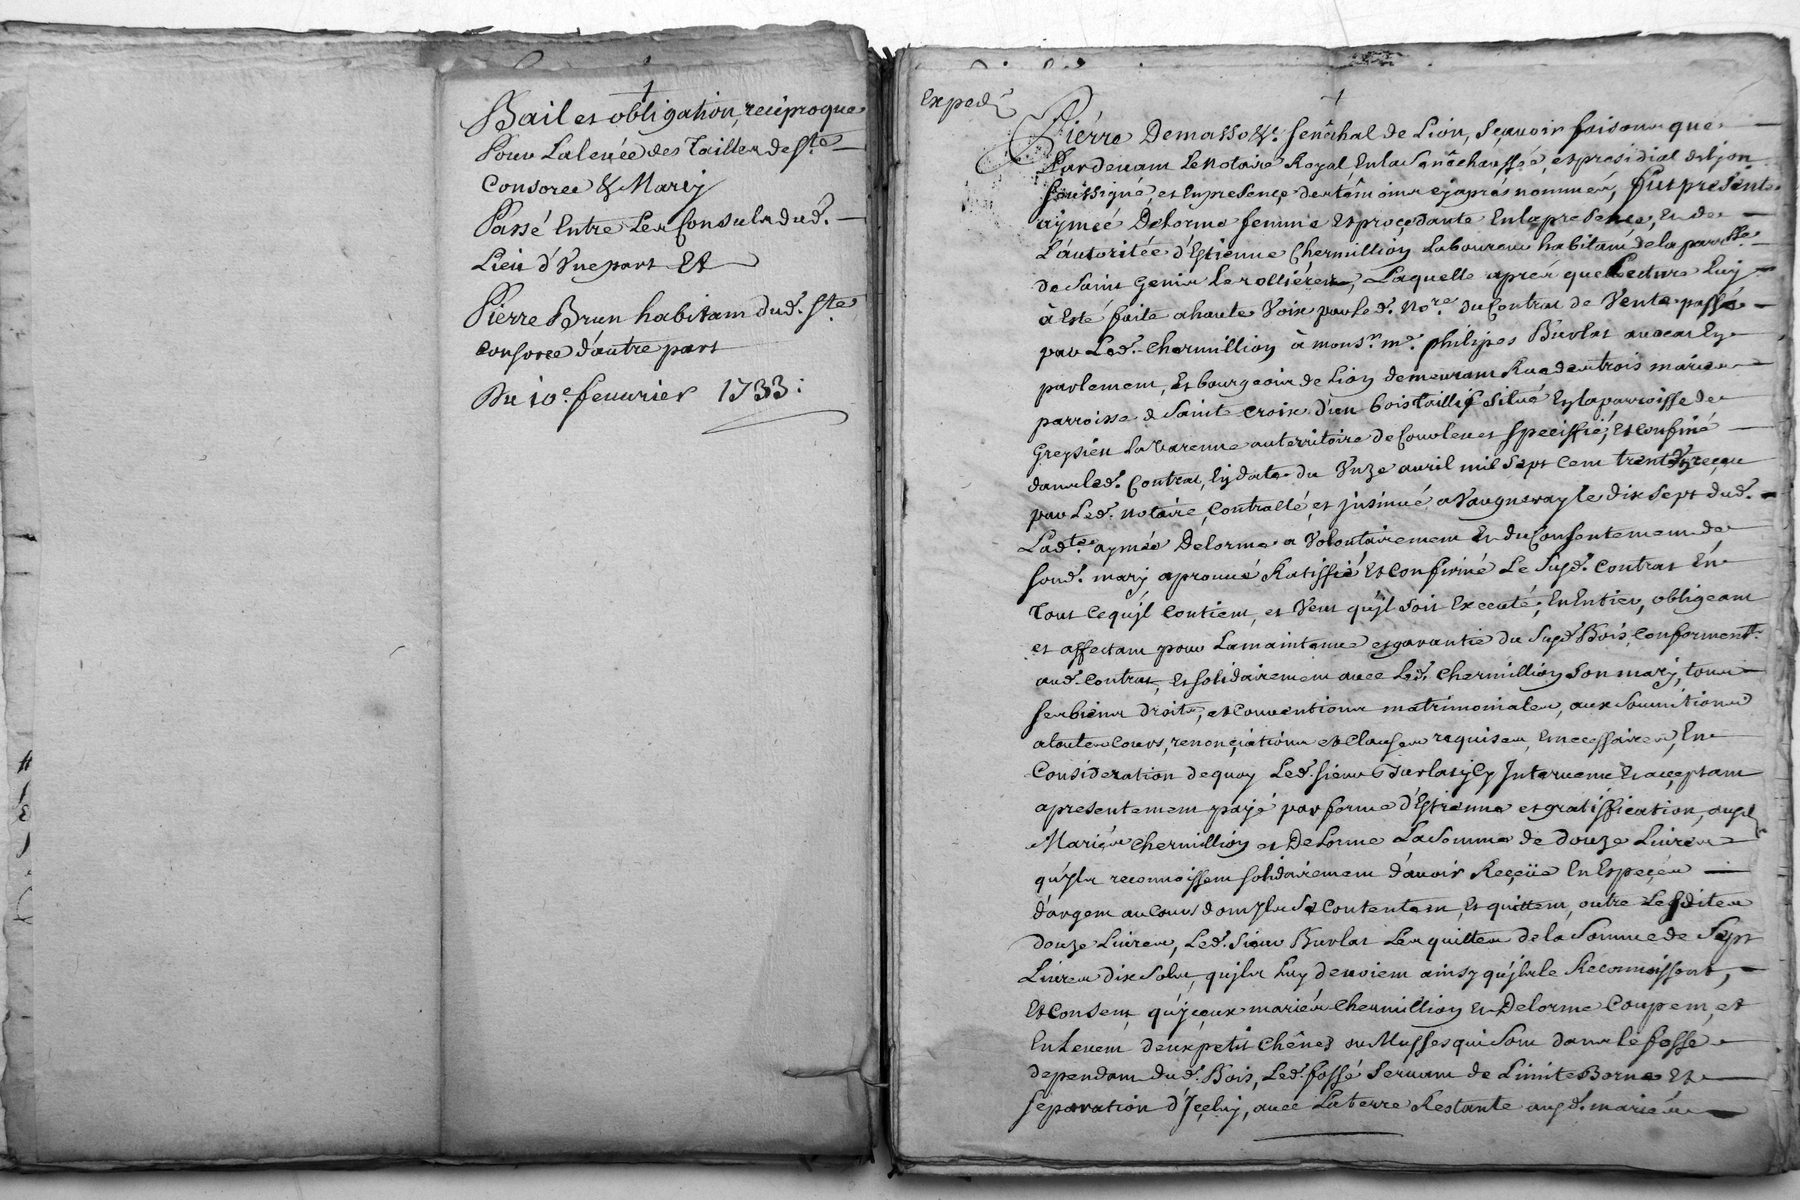 Bail et obligation, reciproque
Pour La levée des Tailles de Ste
Consorce & Marcy
Passé Entre Les Consuls dud.
Lieu d'Une part Et
Pierre Brun habitant dud. Ste
consorce d'autre part
Du 10e. feuurier 1733:
Exped
Pierre Demasso &c. senéchal de Lion, sçauoir faisons que
Pardeuant Le notaire Royal, En la senéchaussée, et presidial de lyon
soussigné, et En presence des témoins cy aprés nommés, fut presente
aymée Delorme femme et procedante En la presence, Et de
L'autoritée d'Estienne Chermillion Laboureur habitant de la parrsse.
de Saint Genis Les ollieres, Laquelle aprés que Lecture Luy
à Esté faite a haute Voix par led. No.re du Contrat de Vente passé
par Led. Chermillion à monsr. me. philipes Burlat auocat En
parlement, Et bourgeois de Lion demeurant Rue des trois maries
parroisse de Sainte Croix d'un bois taillis situé En la parroisse de
Greysieu La Varenne au territoire de Coules et specifié, et confiné
dans led. Contrat, En date du Vnze auril mil sept cent trente Vn reçeu
par Led. notaire, Controllé, et jnsinué a Vaugneray le dix sept dud.
Ladte. aymée Delorme a Volontairement Et du Consentement de
sond. mary aprouué Ratiffié Et confirmé Le susd. contrat En
Tout ce qu'jl contient, et Veut qu'jl soit Executé, En Entier, obligeant
et affectant pour La maintenue et garantie du susd. Bois, conforment.
aud. contrat, Et solidairement auec Led. Chermillion son mary, tous
ses biens droits, et conuentions matrimoniales, aux soumitions
a toutes cours, renonçiations et clauses requises, Et necessaires, En
Consideration de quoy Led. sieur Burlat jcy Interuenu Et acçeptant
a presentement payé par forme d'Estrenne et gratiffication, ausd.
Mariés Chermillion et Delorme La somme de douze Liures
qu'jls reconnoissent solidairement d'auoir Reçeüe En Espeçes
d'argent au cours dont jls se contentent, Et quittent, outre Lesdites
douze Liures, Led. sieur Burlat Les quittes de la somme de Sept
Liures dix sols, qu'jls Luy deuoient ainsy qu'jls le Reconnoissent,
Et consent qu'jçeux mariés Chermillion Et Delorme Coupent, et
En Leuent deux petit Chênes ou Musses qui sont dans le fossé
dependant dud. Bois, Led. fossé seruant de Limite Borne Et
separation d'Jçeluy, auec La terre Restante ausd. mariés